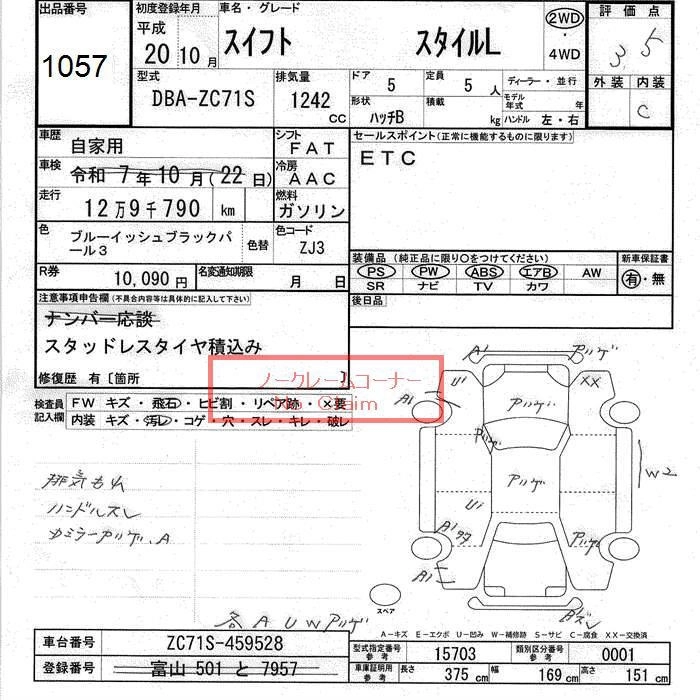 出品番号
1057
初度登録年月
平成
20年10月
車名・グレード
スイフト スタイルL
2WD
・
4WD
評価点
3.5
外装 内装
C
型式
DBA-ZC71S
排気量
1242
CC
ドア
5
定員
5人
ディーラー・並行
形状
ハッチB
積載
kg
モデル年式 年
ハンドル 左・右
車歴
自家用
シフト
FAT
車検
令和 7年10月(22日)
冷房
AAC
走行
12万9千790 km
燃料
ガソリン
色
ブルーイッシュブラックパール3
色替
色コード
ZJ3
R券
10,090円
名変通知期限
月 日
セールスポイント(正常に機能するものに限ります)
ETC
装備品 (純正品に限り○をつけてください)
PS PW ABS エアB AW
SR ナビ TV カワ
新車保証書
有・無
後日品
注意事項申告欄(不具合内容等は具体的に記入して下さい)
ナンバー応談
スタッドレスタイヤ積込み
修復歴 有〔箇所 〕
ノークレームコーナー
No Claim
検査員記入欄
FW キズ・飛石・ヒビ割・リペア跡・×要
内装 キズ・汚レ・コゲ・穴・スレ・キレ・破レ
排気もれ
ハンドルスレ
カミラーアリゲ.A
各AUWアリゲ
A1 アリゲ
U1 XX
A1 アリゲ
アリゲ
アリゲ
W2
U1
A1タタ アリゲ
A1
スペア
Bズレ
A-キズ E-エクボ U-凹み W-補修跡 S-サビ C-腐食 XX-交換済
車台番号
ZC71S-459528
登録番号
富山 501 と 7957
型式指定番号
参考
15703
類別区分番号
参考
0001
車庫証明用
参考
長さ 375cm 幅 169cm 高さ 151cm